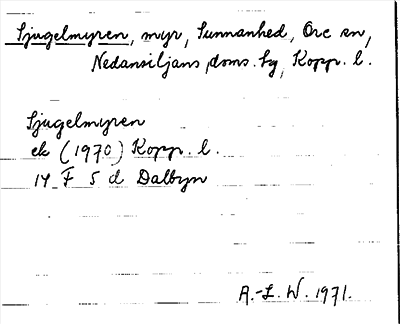 Sjugelmyren, myr, Sunnanhed, Ore sn,
Nedansiljans doms. hg, Kopp. l.
Sjugelmyren
ek (1970) Kopp. l.
14 F 5 d Dalbyn
A.-L. W. 1971.